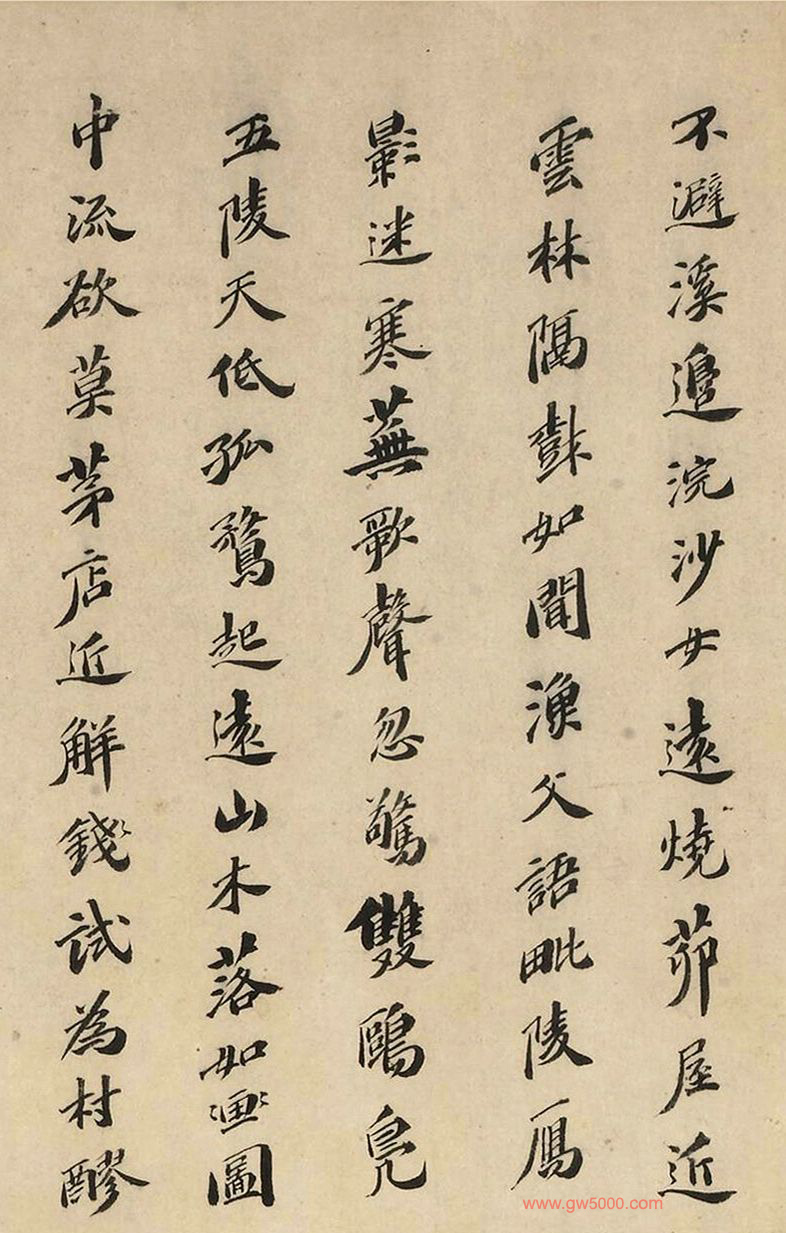 不避溪邊浣沙女遠燒茆屋近
雲林隔𡔷如聞漁父語毗陵鴈
影迷寒蕪歌聲忽驚雙鷗鳧
五陵天低孤鶩起遠山木落如畫圖
中流欲莫茅店近解錢試為村醪
www.gw5000.com